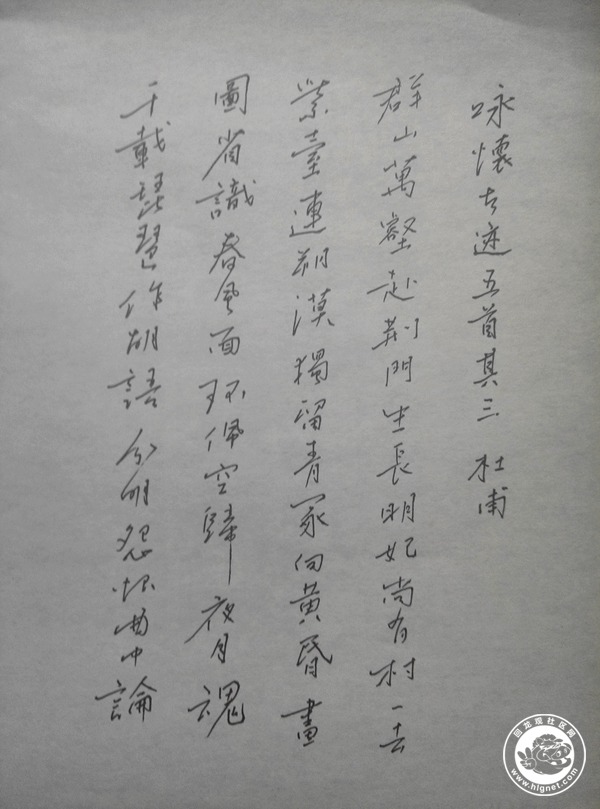 咏懷古迹五首其三 杜甫
群山萬壑赴荆門生長明妃尚有村一去
紫臺連朔漠獨留青冢向黃昏畫
圖省識春風面環佩空歸夜月魂
千載琵琶作胡語分明怨恨曲中論
回龙观社区网
www.hlgnet.com